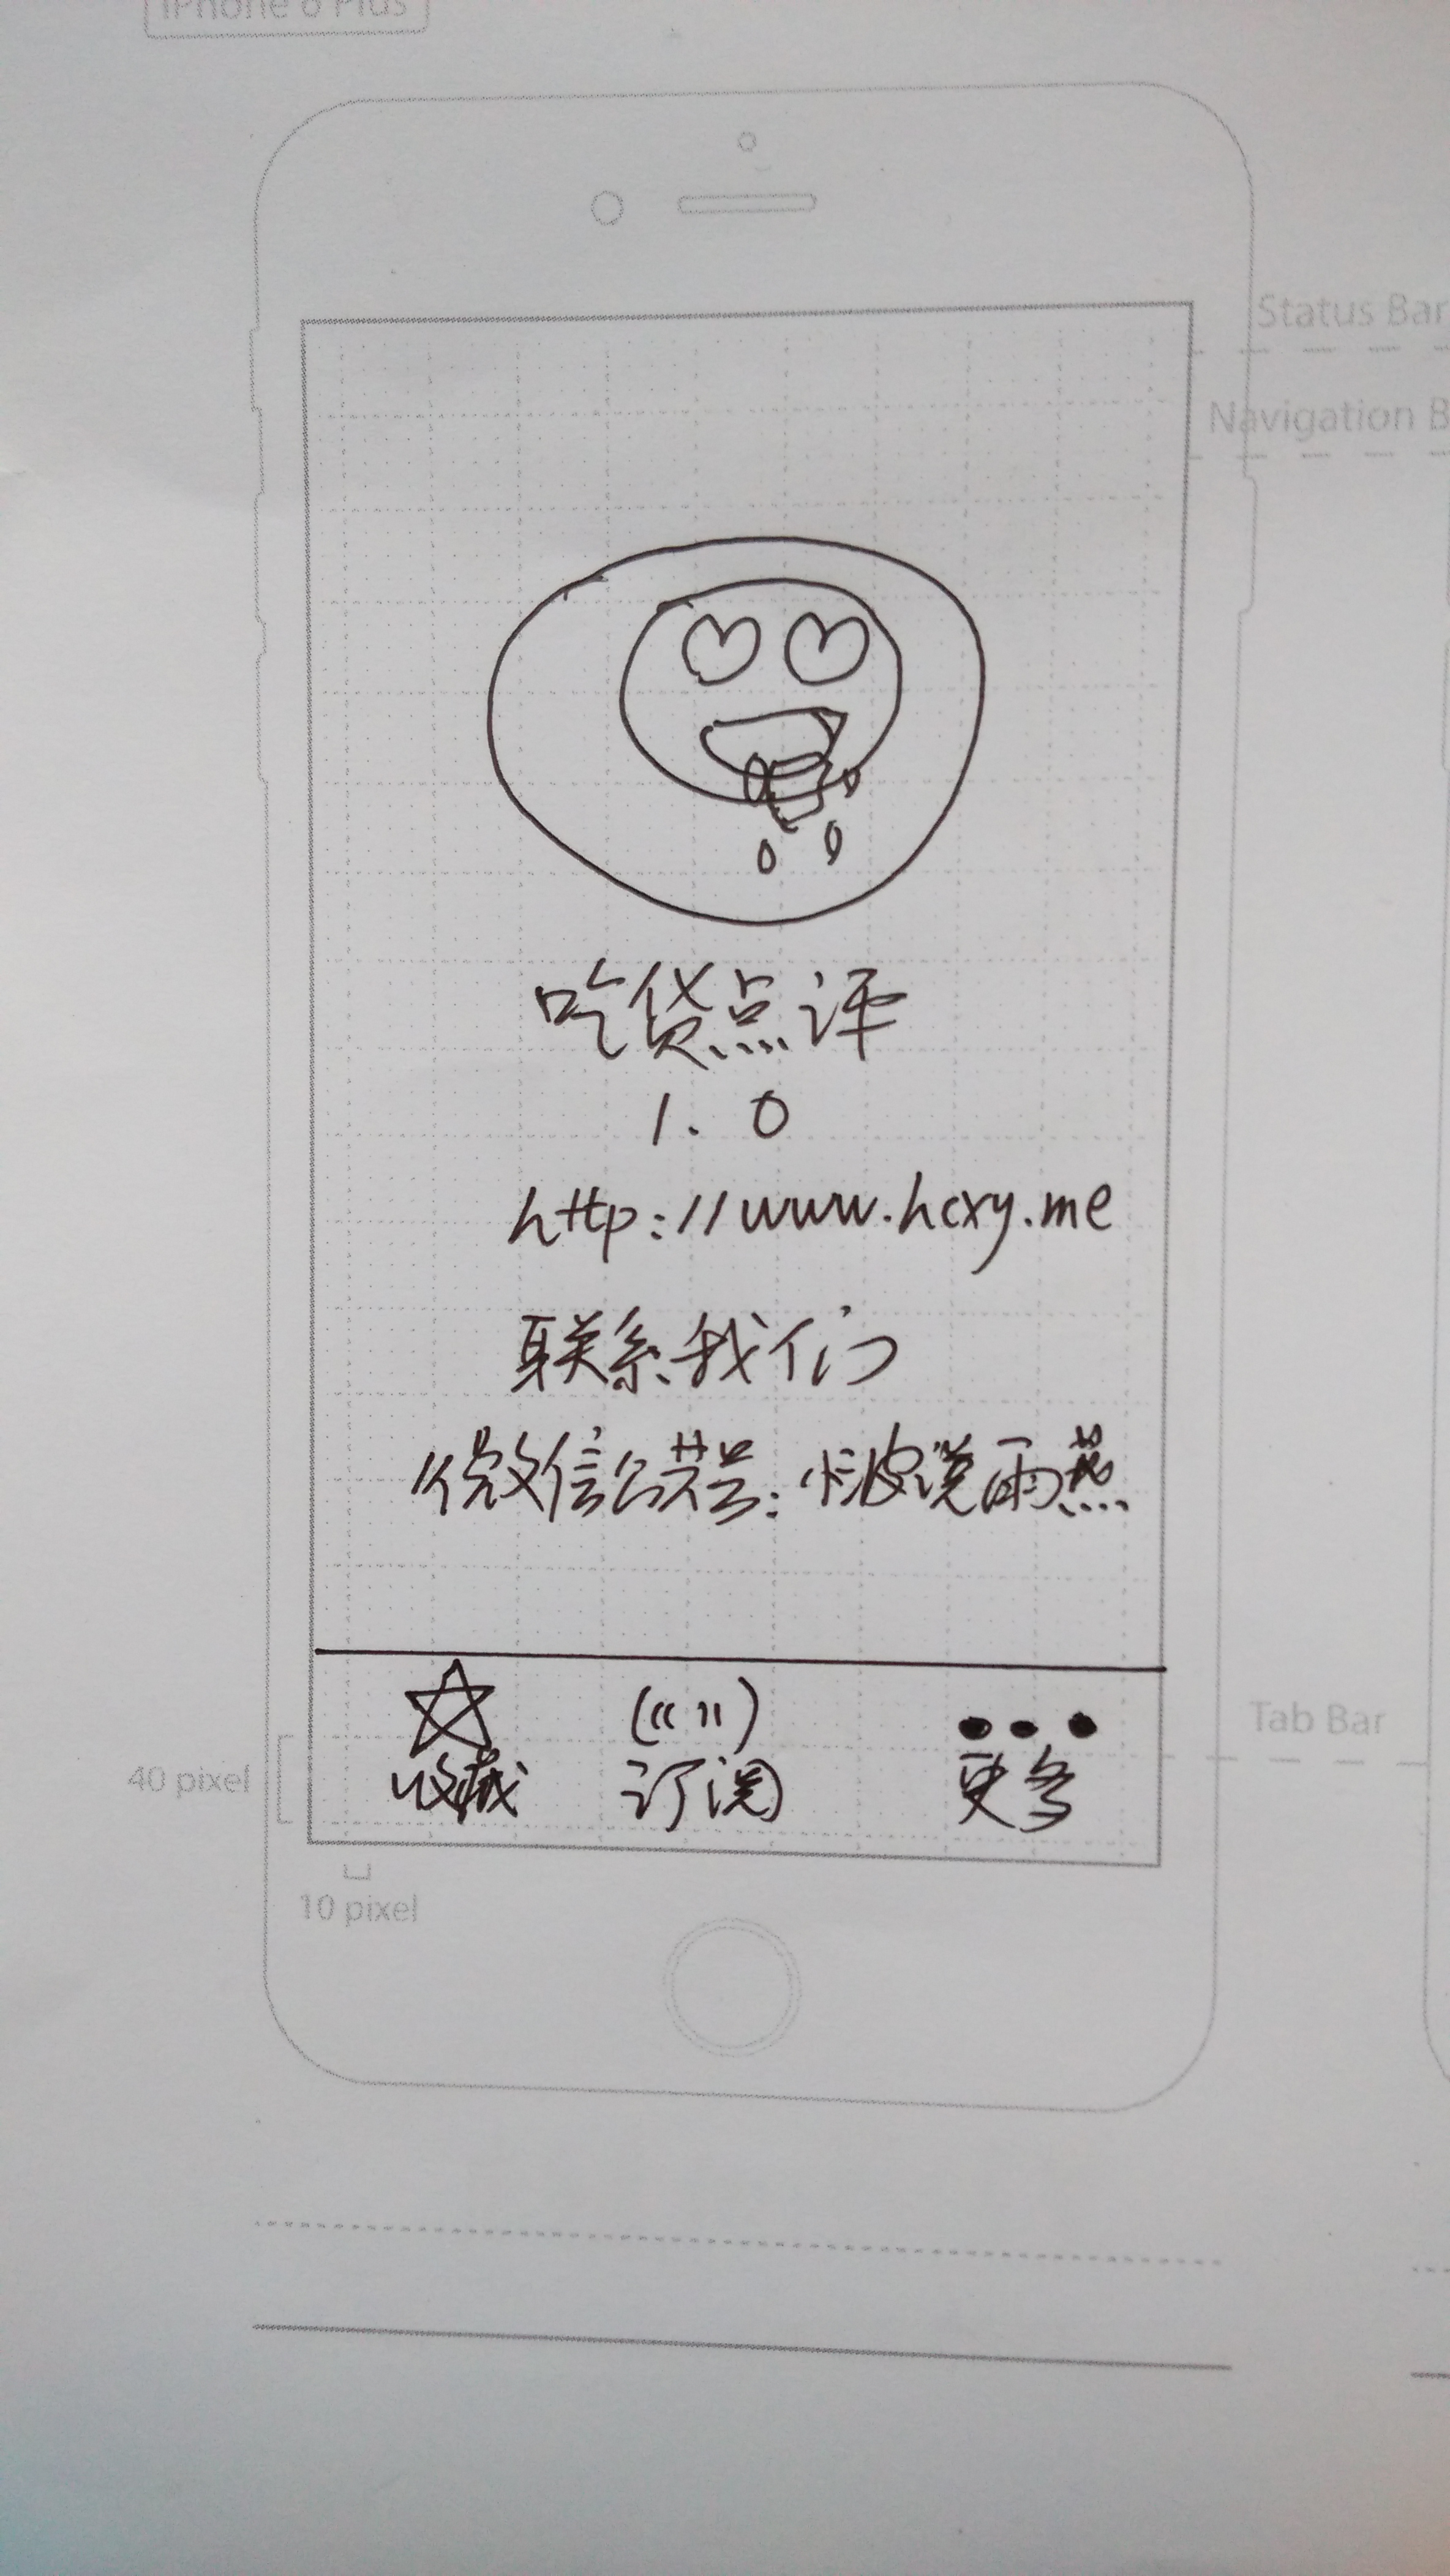 iPhone 6 Plus
Status Bar
Navigation B
吃货点评
1.0
http://www.hcxy.me
联系我们
微信公共号:小波说雨燕
Tab Bar
收藏 订阅 更多
40 pixel
10 pixel